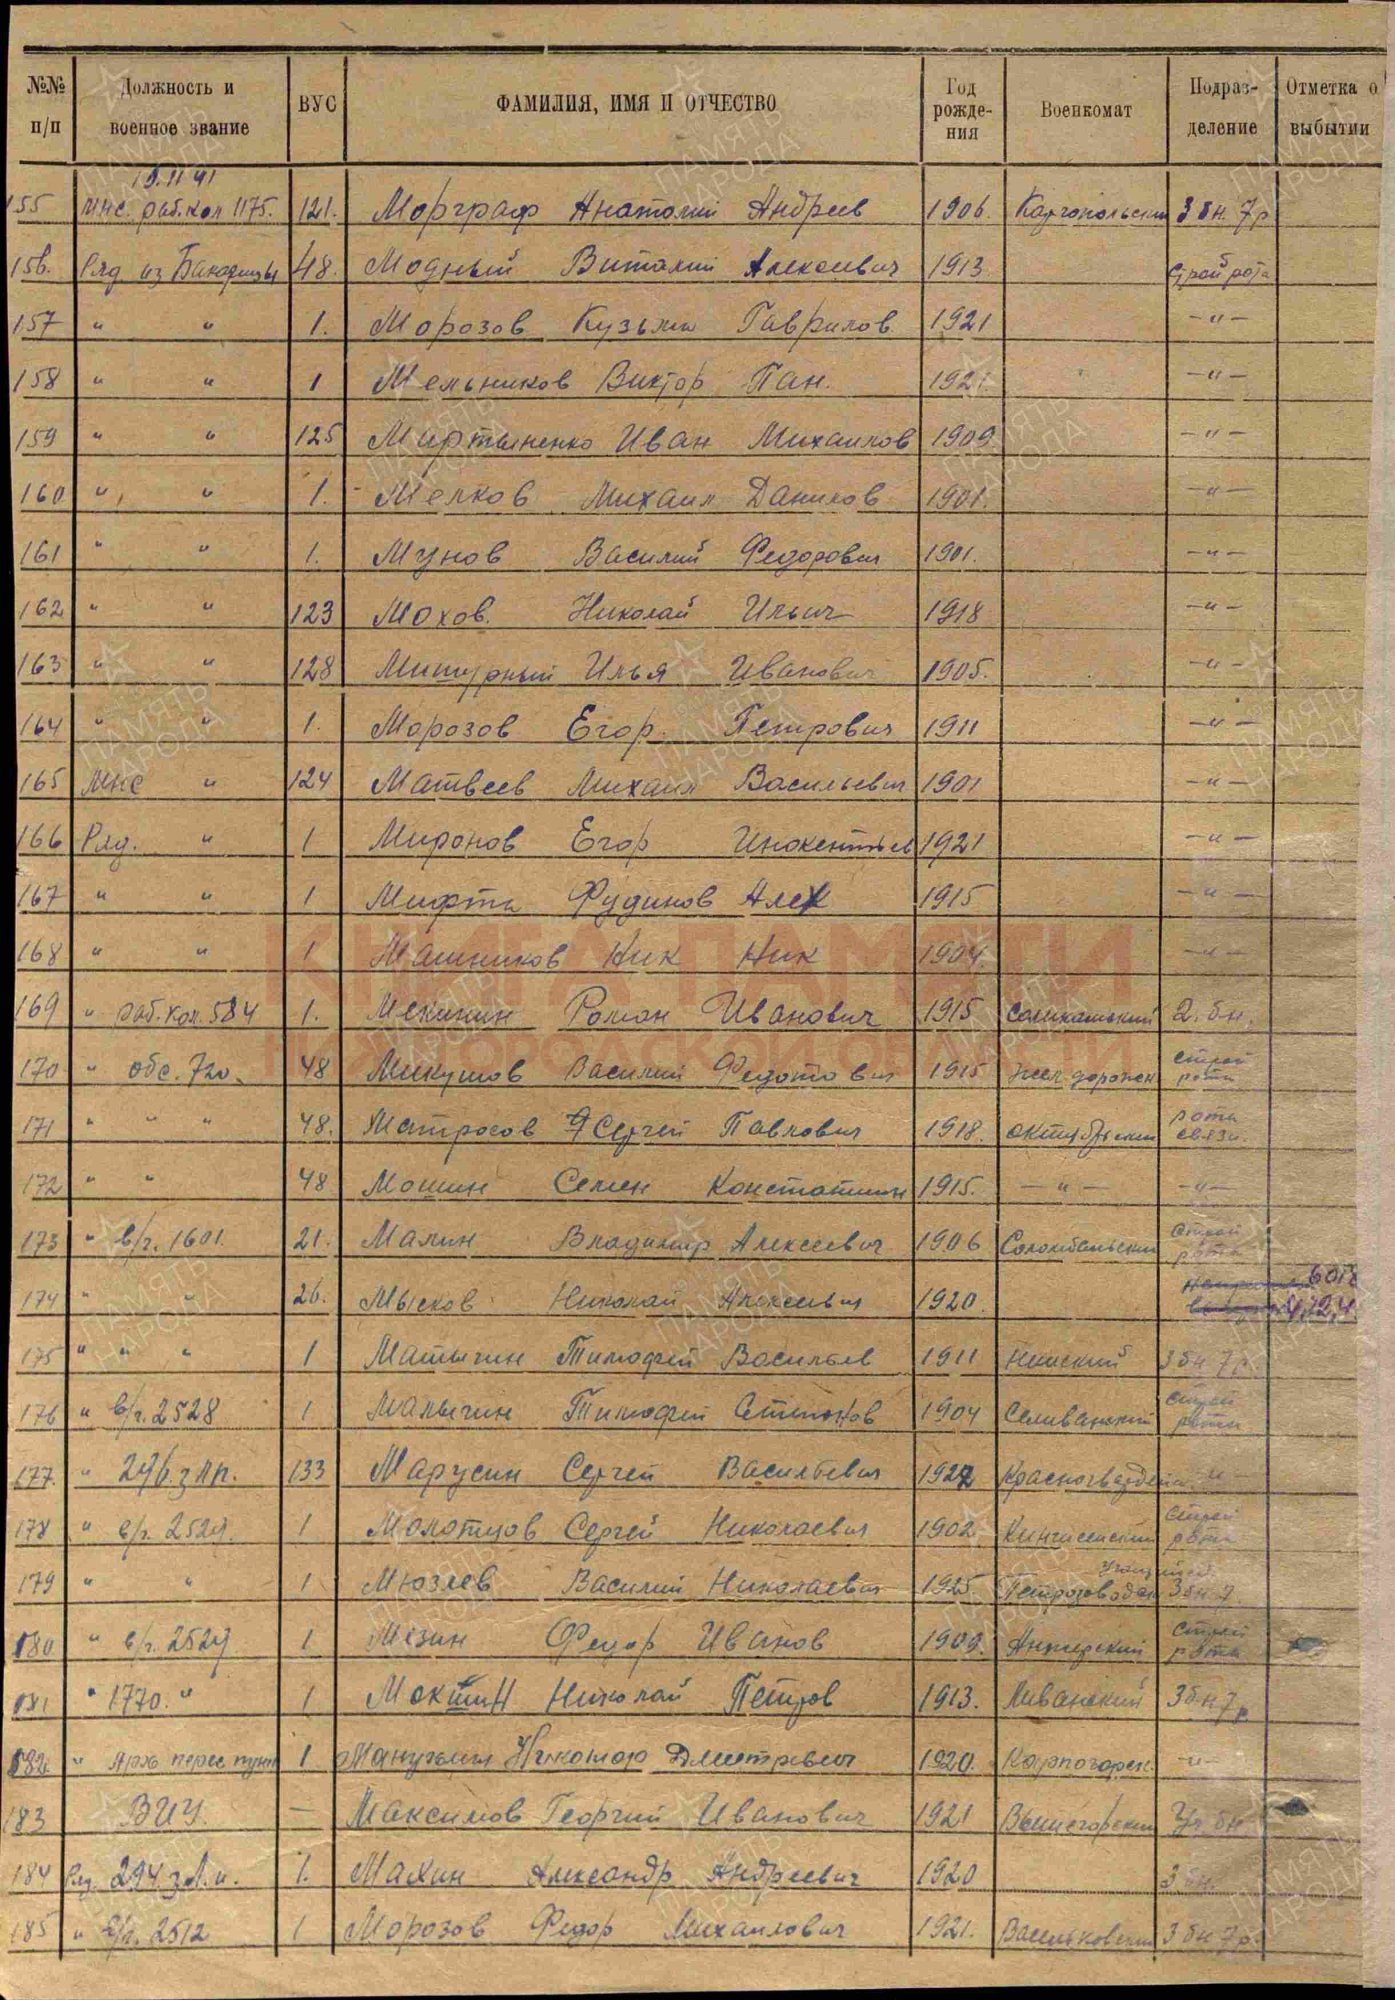 №№ п/п | Должность и военное звание | ВУС | ФАМИЛИЯ, ИМЯ И ОТЧЕСТВО | Год рождения | Военкомат | Подразделение | Отметка о выбытии
155 мнс. раб.кол 1175. 121. Морграф Анатолий Андреев 1906. Каргопольский 3 бн. 7 р
156. Ряд из 48. Модный Виталий Алексеевич 1913 Строй рота
157 " " 1. Морозов Кузьма Гаврилов 1921 -"-
158 " " 1 Мельников Виктор Пан. 1921. -"-
159 " " 125 Мартыненко Иван Михаилов 1909 -"-
160 " " 1. Мелков Михаил Данилов 1901. -"-
161 " " 1. Мунов Василий Федорович 1901. -"-
162 " " 123 Мохов. Николай Ильич 1918 -"-
163 " " 128 Илья Иванович 1905. -"-
164 " " 1. Морозов Егор Петрович 1911 -"-
165 мнс " 124 Матвеев Михаил Васильевич 1901 -"-
166 Ряд. " 1 Миронов Егор Инокентьев 1921 -"-
167 " " 1 Мифта Фудинов Алек 1915 -"-
168 " " 1 Машников Ник Ник 1904. -"-
169 " раб. кол. 584 1. Роман Иванович 1915 Соликамский 2. бн.
170 " обс. 720. 48 Микушов Василий Федотович 1915 Жел дорожн строй рота
171 " " " 48. Матросов Сергей Павлович 1918. октябрьский рота связи.
172 " " 48 Мошин Семен Константин 1915. -"- -"-
173 " в/ч. 1601. 21. Малин Владимир Алексеевич 1906 Соломбальский Строй рота
174 " " 26. Мысков Николай Алексеевич 1920.
175 " " " 1 Тимофей Васильев 1911 3 бн 7 р.
176 " в/ч. 2528 1 Малыгин Тимофей Степанов 1904 строй рота
177. " 296. з лп. 133 Марусин Сергей Васильевич 1922 Красногвардейск "
178 " в/ч. 2529. 1 Молотцов Сергей Николаевич 1902 Кингисепский строй рота
179 " " 1 Мюзлев Василий Николаевич 1925. Петрозаводск 3 бн 7
180 " в/ч. 2529 1 Мезин Федор Иванов 1909. строй рота
181 " 1770. " 1 Мокшин Николай Петров 1913. 3 бн 7 р
182 " Арх перес пункт 1 Дмитревич 1920. Карпогорск. -"-
183 ВИУ. — Максимов Георгий Иванович 1921 Вышегорский Уч бн
184 Ряд. 294 з.л.п. 1. Махин Александр Андреевич 1920 3 бн.
185 " в/ч. 2512 1 Морозов Федор Михаилович 1921. Васильковский 3 бн 7 р.
КНИГА ПАМЯТИ
НИЖЕГОРОДСКОЙ ОБЛАСТИ
ПАМЯТЬ НАРОДА